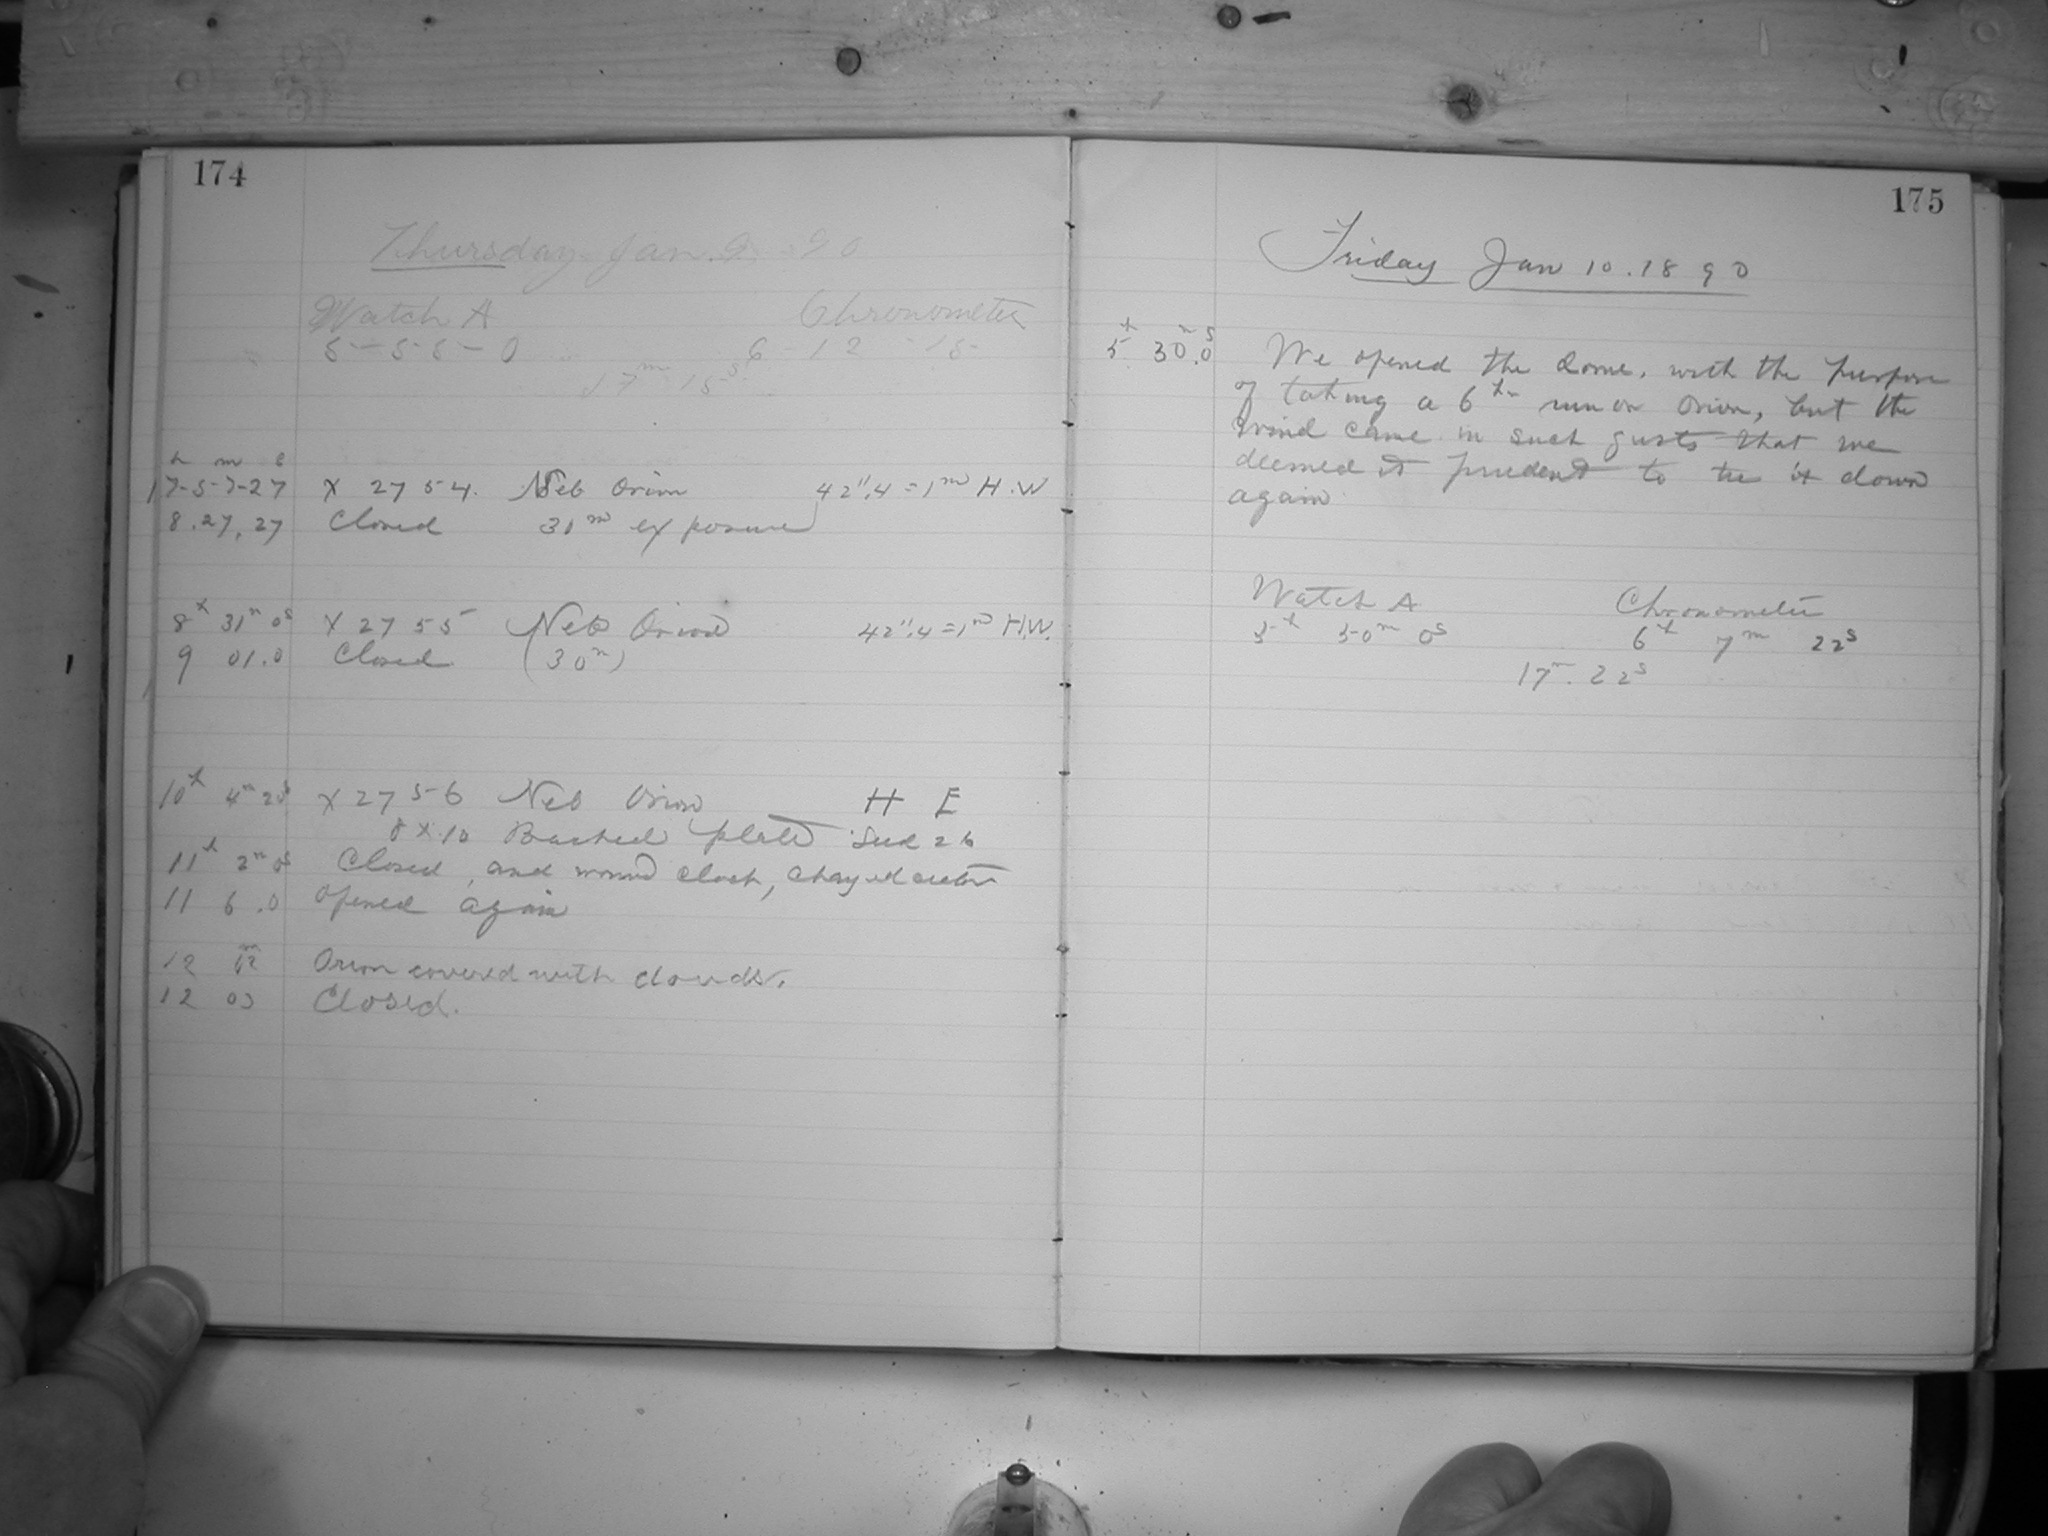 174
Thursday. Jan. 9. 90
Watch A Chronometer
5-55-0 6 12 15
17m 15s
h m s
7-57-27 X 2754. Neb Orion 42".4=1m H.W
8.27.27 Closed 30m exposure
8h 31m 0s X 2755 Neb Orion 42".4=1m H.W.
9 01.0 Closed (30m)
10h 4m 20s X 2756 Neb Orion H E
8 x 10 Backed plate Seed 26
11h 2m 0s Closed, and wound clock,
11 6.0 Opened again
12 m Orion covered with clouds.
12 03 Closed.
175
Friday Jan 10.1890
5h 30m.0s We opened the dome, with the purpose
of taking a 6h run on Orion, but the
wind came in such gusts that we
deemed it prudent to tie it down
again
Watch A Chronometer
5h 50m 0s 6h 7m 22s
17m. 22s